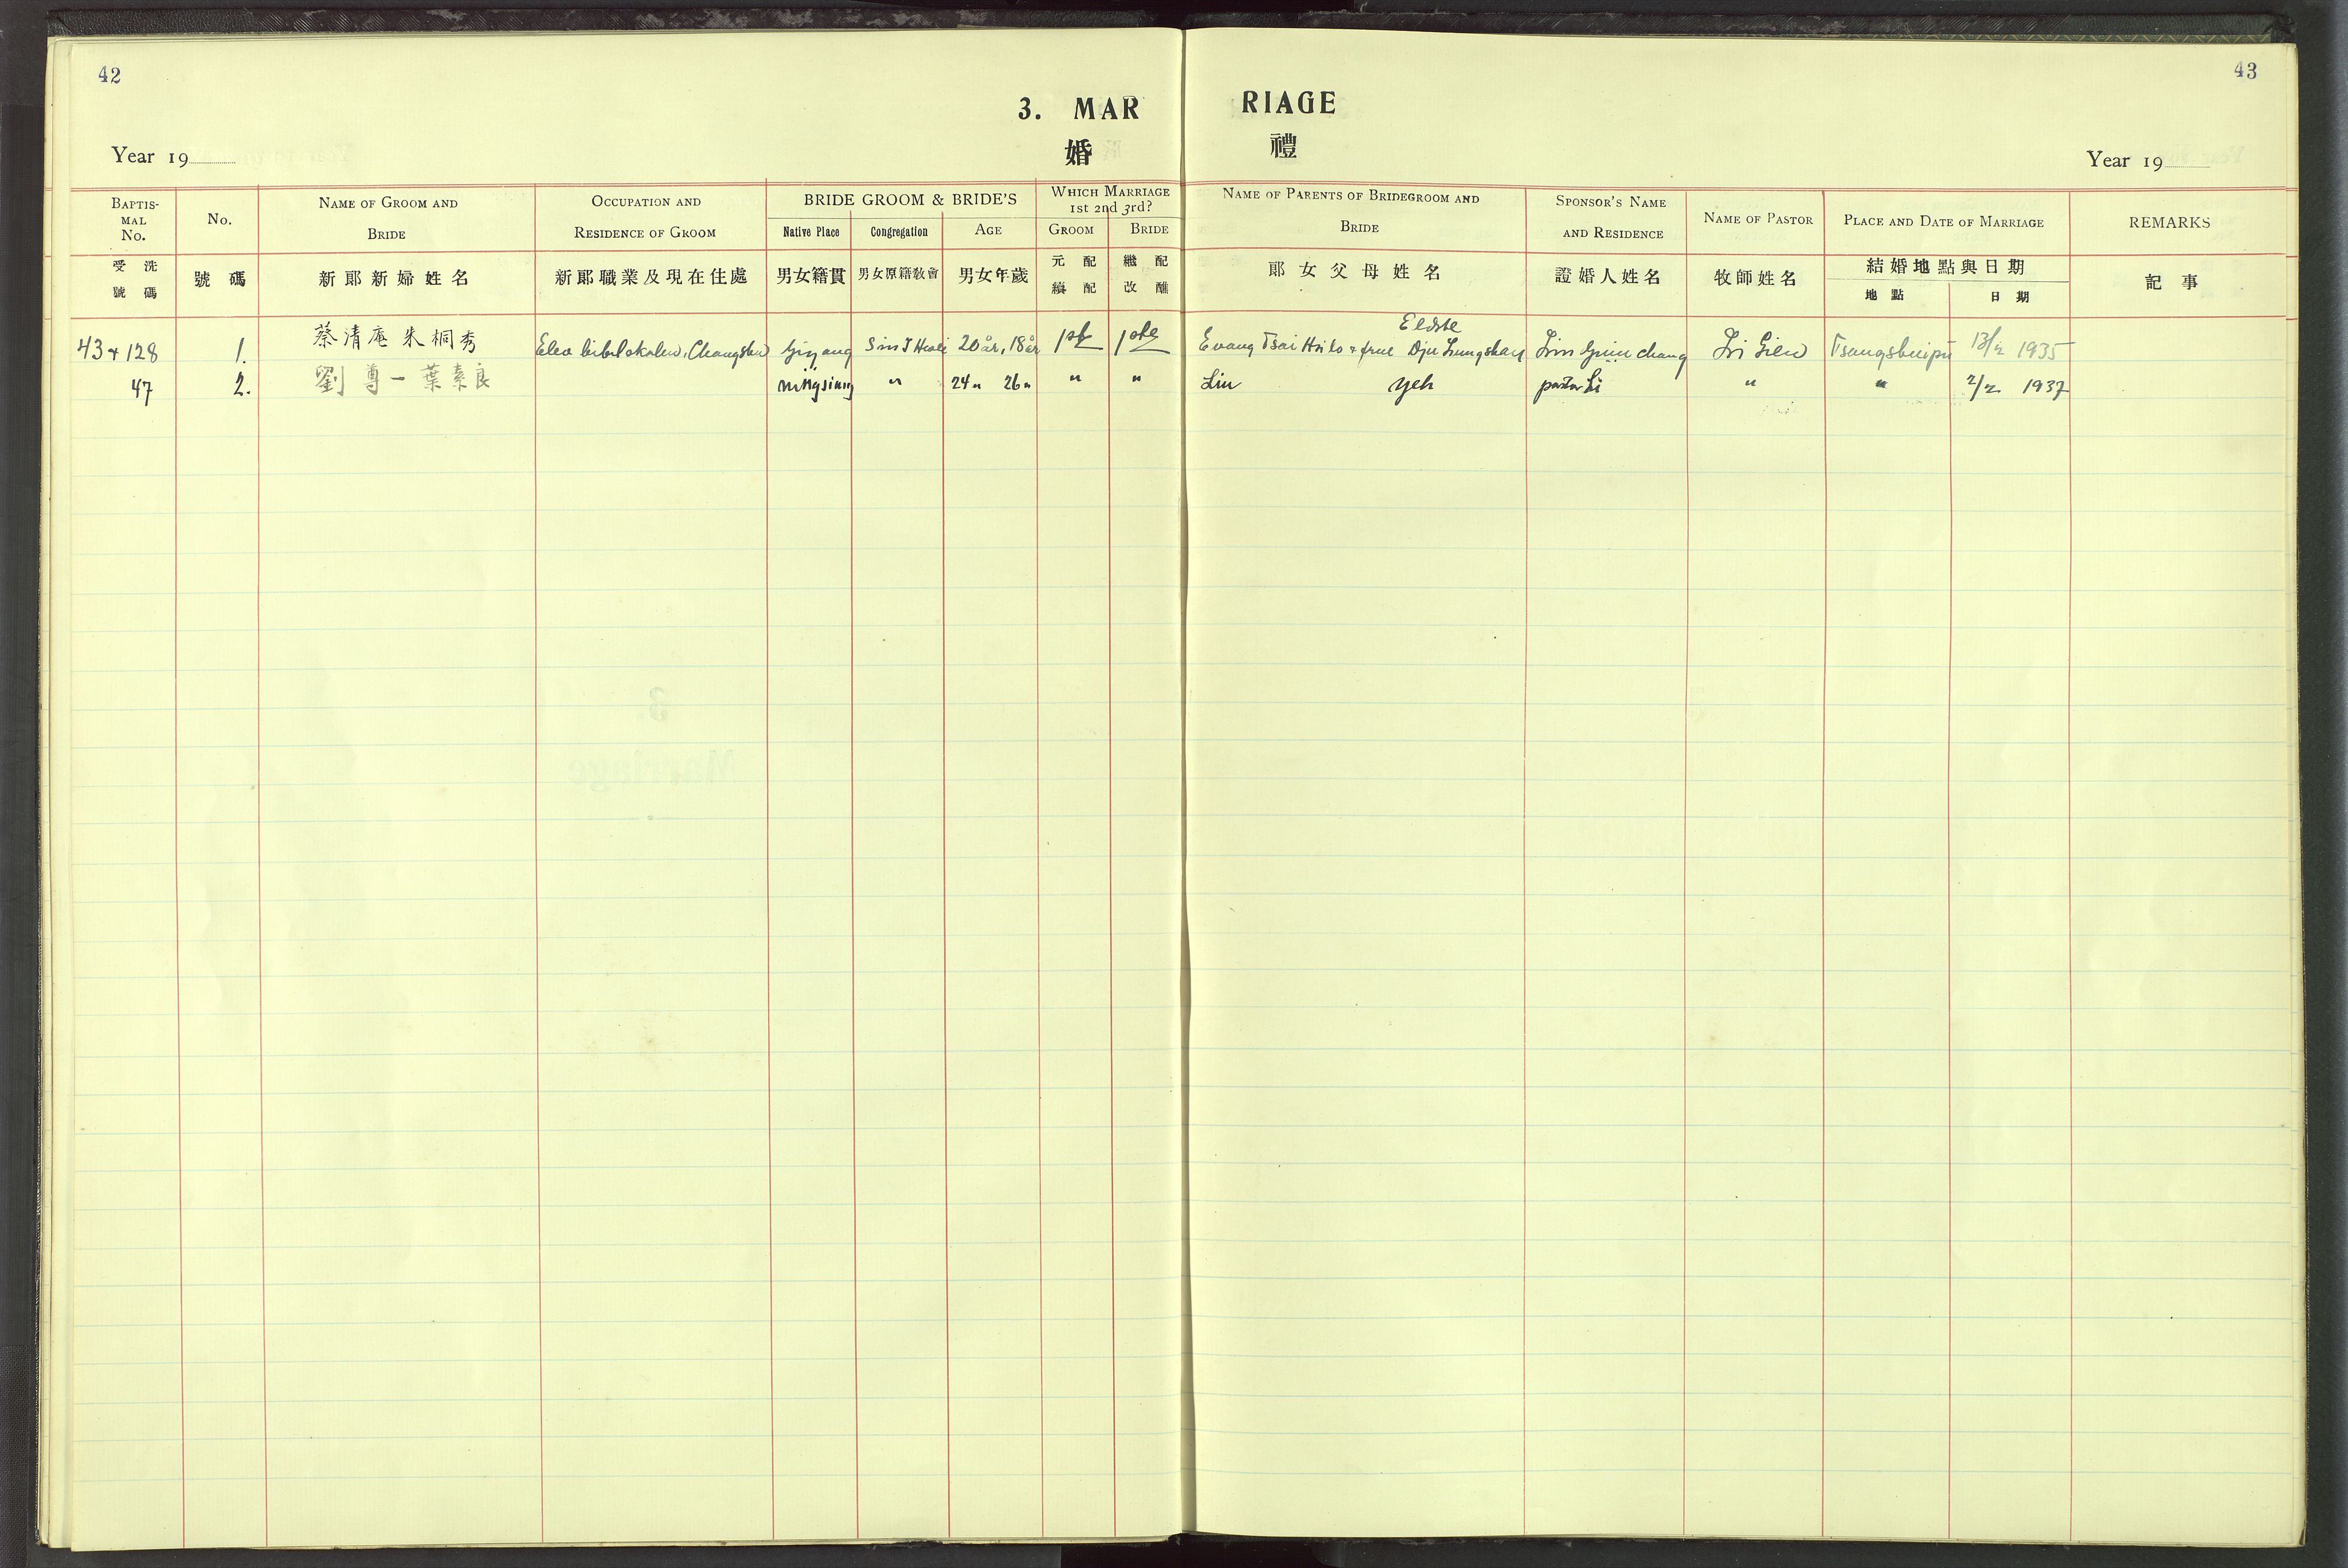 42
43
3. MAR RIAGE
婚 禮
Year 19
Year 19
BAPTISMAL No.
No.
NAME OF GROOM AND BRIDE
OCCUPATION AND RESIDENCE OF GROOM
BRIDE GROOM & BRIDE'S
Native Place
Congregation
AGE
WHICH MARRIAGE 1st 2nd 3rd?
GROOM
BRIDE
NAME OF PARENTS OF BRIDEGROOM AND BRIDE
SPONSOR'S NAME AND RESIDENCE
NAME OF PASTOR
PLACE AND DATE OF MARRIAGE
REMARKS
受洗號碼
號碼
新郞新婦姓名
新郞職業及現在住處
男女籍貫
男女原籍敎會
男女年歲
元配 續配
繼配 改醮
郞女父母姓名
證婚人姓名
牧師姓名
結婚地點與日期
地點
日期
記事
43 + 128 1. 蔡清庵 朱桐秀 Elev bibelskolen, Changsha Yiyang Sin I Hwei 20 år, 18 år 1st 1ste Evang Tsai Hsi lo + frue Eldste Dju Liin chang Li Tsangshuipu 13/2 1935
47 2. 劉尊一 葉素良 Ningsiang " 24 " 26 " " " Liu Yeh pastor Li " " 2/2 1937